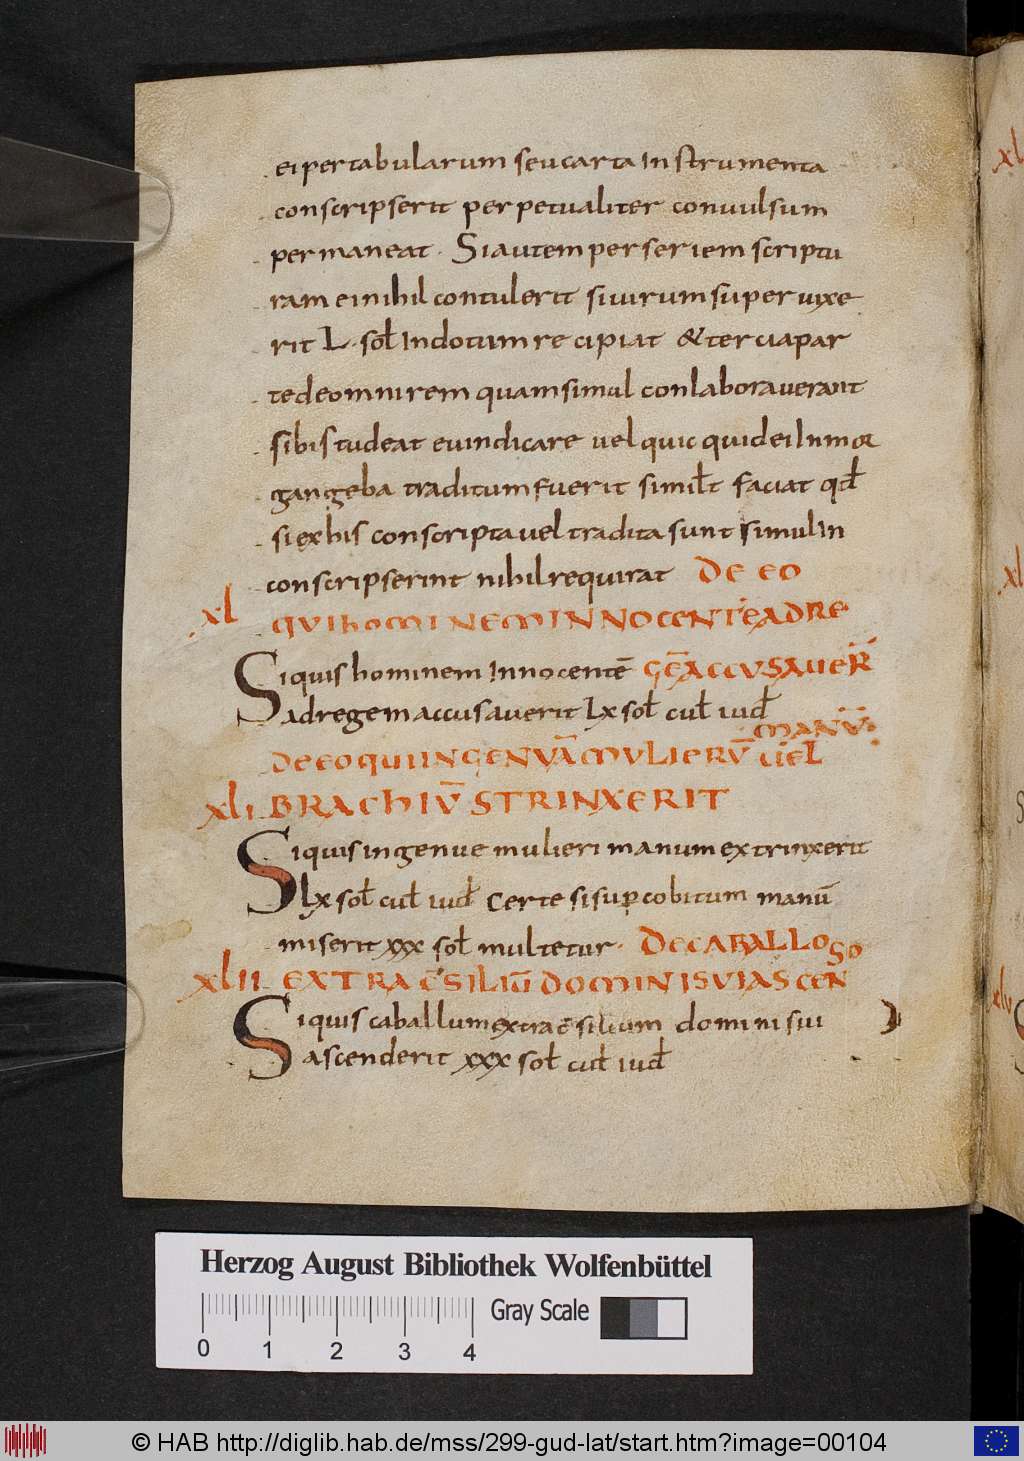 ei per tabularum seu carta instrumenta
conscripserit perpetualiter convulsum
permaneat. Si autem per seriem scriptu
ram ei nihil contulerit si virum supervixe
rit L. sol̄ in dotum recipiat & tercia par
te de omni rem quam simul conlaboraverant
sibi studeat evindicare vel quicquid ei in mor
gangeba traditum fuerit simil̄t faciat qd̄
si ex his conscripta vel tradita sunt simul in
conscripserint nihil requirat DE EO
xl QUI hOMINEM INNOCENTEADRE
Si quis hominem innocentē GĒ ACCUSAVER̄
ad regem accusaverit Lx sol̄ cul̄ iud̄
MANŪ
DE EO QUI INGENUĀ MULIERŪ UEL
xli BRACHIŪ STRINXERIT
Si quis ingenue mulieri manum extrinxerit
Lx sol̄ cul̄ iud̄ certe si sup̱ cobitum manū
miserit xxx sol̄ multetur. DE CABALLO
SO
xlii EXTRA C̄SILIŪ DOMINI SUI ASCEN
Si quis caballum extra c̄silium domini sui
ascenderit xxx sol̄ cul̄ iud̄
xl
xl
xlv
Herzog August Bibliothek Wolfenbüttel
Gray Scale
0 1 2 3 4
© HAB http://diglib.hab.de/mss/299-gud-lat/start.htm?image=00104